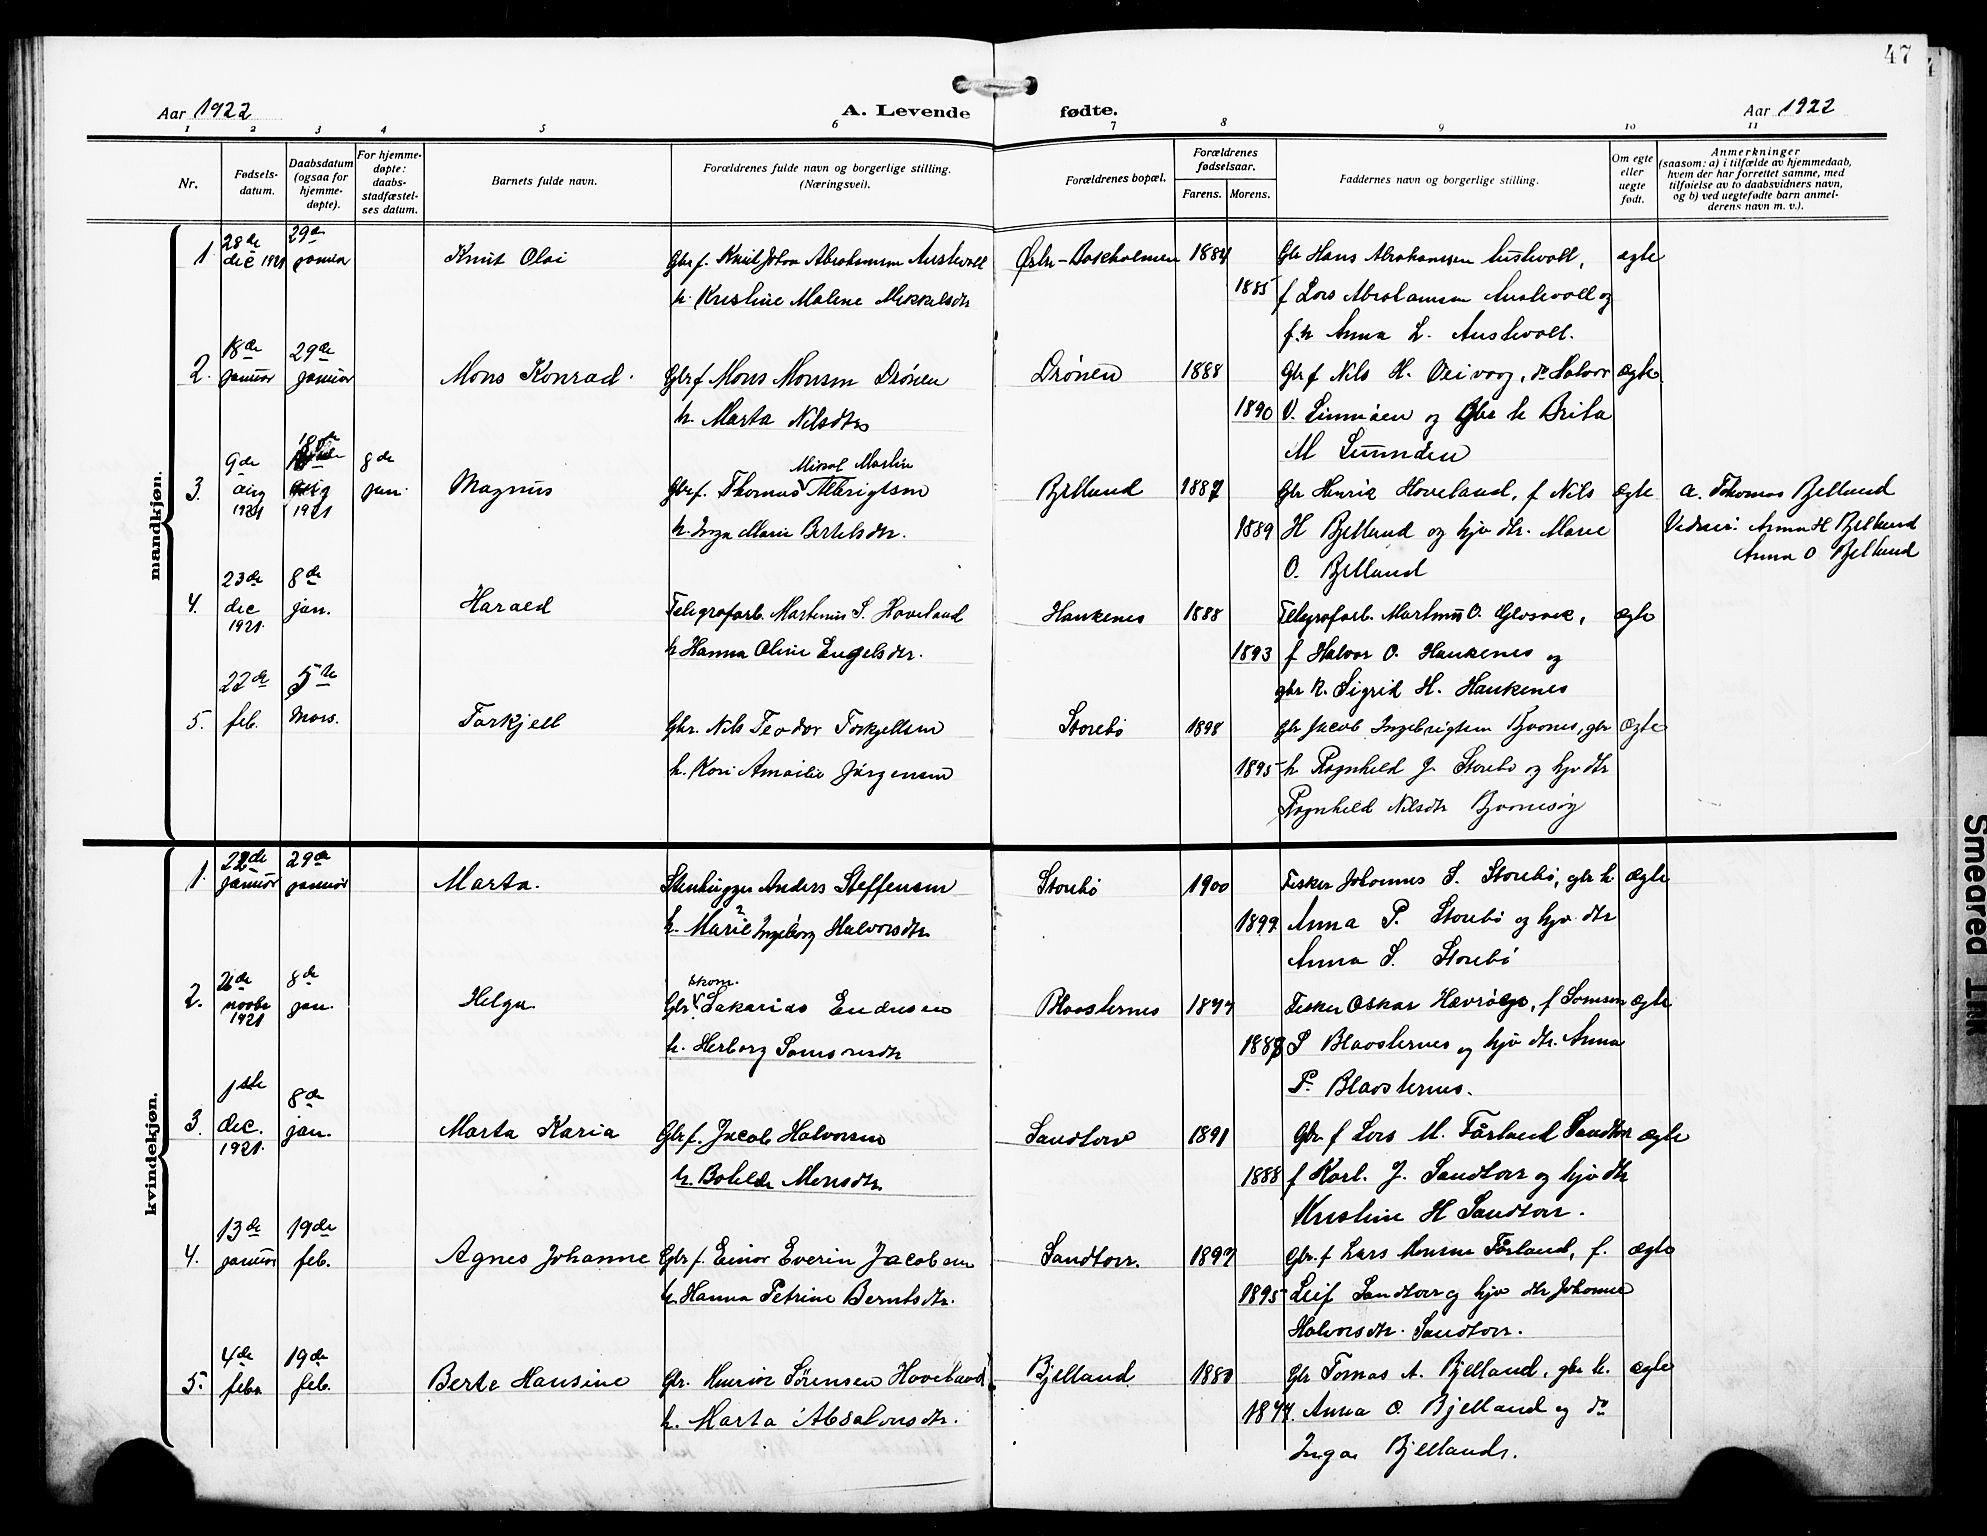 47
Aar 1922
A. Levende fødte.
Aar 1922
1 2 3 4 5 6 7 8 9 10 11
Nr.
Fødsels-
datum.
Daabsdatum
(ogsaa for
hjemme-
døpte).
For hjemme-
døpte:
daabs-
stadfæstel-
ses datum.
Barnets fulde navn.
Forældrenes fulde navn og borgerlige stilling.
(Næringsvei).
Forældrenes bopæl.
Forældrenes
fødselsaar.
Farens. Morens.
Faddernes navn og borgerlige stilling.
Om egte
eller
uegte
født.
Anmerkninger
(saasom: a) i tilfælde av hjemmedaab,
hvem der har forrettet samme, med
tilføielse av to daabsvidners navn,
og b) ved uegtefødte barn anmel-
derens navn m. v.).
mandkjøn.
28de 29de
1 dec 1921 januar Knut Olai Gbr f. Knut Johan Abrahamsen Austevoll Østre-Bakholmen 1884 Gbr Hans Abrahamsen Austevoll, ægte
h. Kristine Malene Mikkelsdtr 1885 f Lars Abrahamsen Austevoll og
f. h Anna L. Austevoll.
18de 29de
2. januar januar Mons Konrad. Gbr f Mons Monsen Drønen Drønen 1888 Gbr f Nils H. , do Halvor ægte
h. Marta Nilsdtr 1890 V. og Gbr h Brita
M
9de 8de Mikal Martin
3. aug jan. Magnus Gbr f. Thomas Albrigtsen Bjelland 1887 Gbr Henrik Hoveland, f Nils ægte a. Thomas Bjelland
1921 1921 h. Inga Marie Bertelsdtr. 1889 H Bjelland og hjv dtr. Marie Vidner: Anna H Bjelland
O. Bjelland Anna O Bjelland
23de 8de
4. dec jan. Harald Telegrafarb. Martinus S. Hoveland Haukenes 1888 Telegrafarb. Martinus O. , ægte
1921. h Hanna Oline Engelsdtr. 1893 f Halvor O. Haukenes og
gbr h. Sigrid H. Haukenes
22de 5te
5. feb. Mars. Torkjell Gbr. Nils Teodor Torkjellsen Storebø 1898 Gbr Jacob Ingebrigtsen , gbr ægte
h. Kari Amalie Jørgensen 1895 h Ragnhild J. Storebø og hjv dtr
Ragnhild Nilsdtr
kvindekjøn.
22de 29de
1. januar januar Marta. Stenhugger Anders Steffensen Storebø 1900 Fisker Johannes S. Storebø, gbr h ægte
h. Marie Ingeborg Halvorsdtr 1899. Anna P. Storebø og hjv dtr
Anna S. Storebø
8de skom.
2. novbr jan. Helga Gbr Sakarias Endresen Blaasternes 1877 Fisker Oskar Hevrøy, f Samson ægte
1921 h. Herborg Samsonsdtr S Blaasternes og hjv dtr. Anna
P. Blaasternes.
1ste 8de
3. dec. jan. Marta Karia Gbr f. Jacob Halvorsen Sandtorv 1891 Gbr f Lars M. Førland Sandtorv ægte
1921. h. Bolilde Monsdtr 1888 f Karl. J. Sandtorv og hjv dtr
Kristine H Sandtorv.
13de 19de
4. januar feb. Agnes Johanne Gbr f. Einar Everin Jacobsen Sandtorv. 1897 Gbr. f Lars Monsen Førland, f. ægte
h Hanna Petrine Berntsdtr. 1895 Leif Sandtorv og hjv dtr Johanne
Halvorsdtr. Sandtorv.
4de 19de
5. febr. feb. Berte Hansine Gbr. Henrik Sørensen Hoveland Bjelland 1880 Gbr Tomas A. Bjelland, gbr h. ægte
h. Marta Absalonsdtr. 1877. Anna O. Bjelland og do
Inga Bjelland.
Smeared Ink